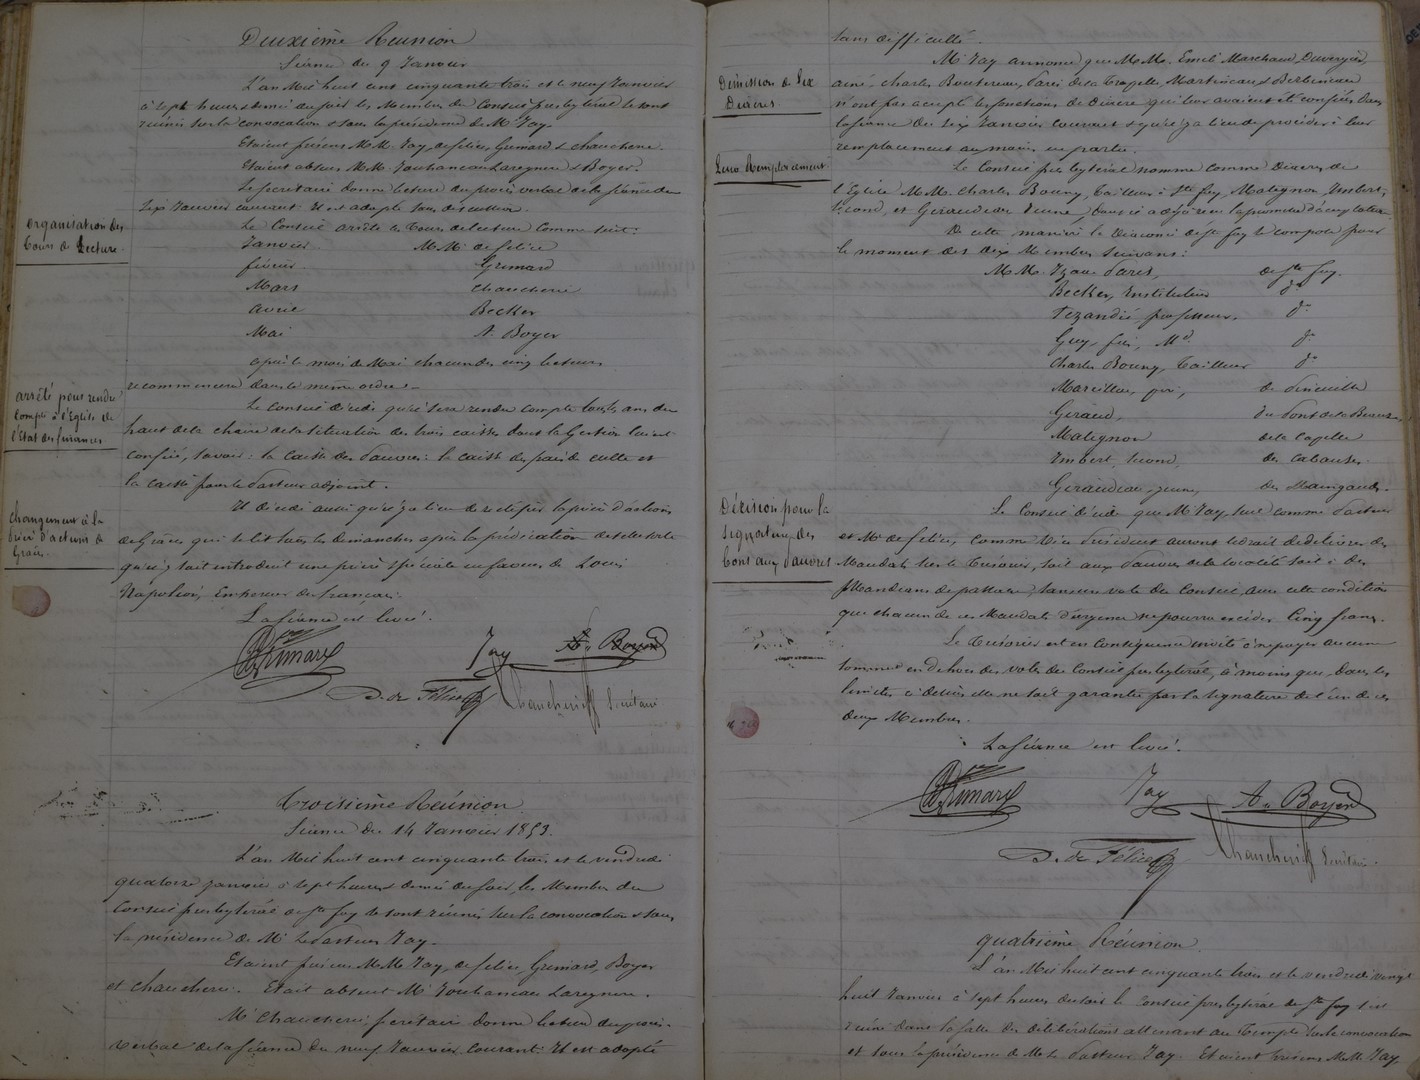 Deuxième Réunion
Séance du 9 Janvier
L'an Mil huit cent cinquante trois et le neuf Janvier
à sept heures & demi du soir les Membres du Conseil presbytéral se sont
réunis sur la convocation & sous la présidence de Mr Jay.
Etaient présens MM. Jay, de félice, Grimard & Chaucherie.
Etaient absens MM. Jouhanneau Lareynere & Boyer.
Le secrétaire donne lecture du procès verbal de la séance du
six Janvier courant. Il est adopté sans discussion.
Organisation des
tours de Lecture.
Le Conseil arrête les tours de lecture comme suit:
Janvier MM. de félice
février Grimard
Mars Chaucherie
avril Becker
Mai A. Boyer
après le mois de Mai chacun des cinq lecteurs
recommencera dans le même ordre.
arrêté pour rendre
Compte à l'Eglise de
l'Etat des finances
Le Conseil décide qu'il sera rendu compte tous les ans du
haut de la chaire de la situation des trois caisses dont la Gestion lui est
confiée, savoir: la Caisse des Pauvres: la caisse des frais de culte et
la caisse pour le Pasteur adjoint.
Changement à la
prière d'actions de
Grâces.
Il décide aussi qu'il y a lieu de la prière d'actions
de Grâces qui se lit tous les dimanches après la prédication de telle sorte
qu'il y soit introduit une prière spéciale en faveur de Louis
Napoléon, Empereur des français.
La séance est levée.
Grimard Jay A. Boyer
D. de Félice Chaucherie Secrétaire
Troisième Réunion
Séance du 14 Janvier 1853.
L'an Mil huit cent cinquante trois et le vendredi
quatorze janvier à sept heures & demi du soir, les Membres du
Conseil presbytéral de Ste foy se sont réunis sur la convocation & sous
la présidence de Mr le Pasteur Jay.
Etaient présens MM. Jay, de félice, Grimard, Boyer
et Chaucherie. Etait absent Mr Jouhanneau Lareynere.
Mr Chaucherie secrétaire donne lecture du procès-
verbal de la séance du neuf Janvier courant. Il est adopté
sans difficulté.
Démission de Six
Diacres.
Mr Jay annonce que MM. Emile Marchand, Duvergier,
ainé, Charles Boutereau, Paris de la Trapelle, Martineau & Berbineau
n'ont pas accepté les fonctions de Diacre qui leur avaient été confiées dans
la séance du six Janvier courant & qu'il y a lieu de procéder à leur
remplacement au moins en partie.
Leur Remplacement
Le Conseil presbytéral nomme comme Diacres de
l'Eglise MM. Charles Bouny, tailleur à Ste foy, Matignon, Imbert,
second, et Giraudeau Jeune
De cette manière le Diaconie de Ste foy se compose pour
le moment des dix Membres suivans:
MM. Isaac Paris, de Ste foy.
Becker, Instituteur do
Tezandié professeur. do
Guy, fils, Md. do
Charles Bouny, Tailleur do
Mareilhac, père, de Pineuilh
Giraud, du Pont de la Beauze
Matignon de la Capelle
Imbert, second, des Cabauses
Giraudeau, jeune, des Maingauds.
Décision pour la
signature des
bons aux Pauvres
Le Conseil décide que Mr Jay, seul comme Pasteur
et Mr de félice, comme Vice Président auront le droit de délivrer des
Mandats sur le Trésorier, soit aux Pauvres de la localité soit à des
Mendians de passage, sans un vote du Conseil, avec cette condition
que chacun de ces Mandats d'urgence ne pourra excéder Cinq francs.
Le Trésorier est en conséquence invité à ne payer aucune
somme en dehors des votes du Conseil presbytéral, à moins que, dans les
limites ci dessus elle ne soit garantie par la signature de l'un de ces
deux Membres.
La séance est levée.
Grimard Jay A. Boyer
D. de Félice Chaucherie Secrétaire.
Quatrième Réunion.
L'an Mil huit cent cinquante trois et le vendredi vingt
huit Janvier à sept heures du soir le Conseil presbytéral de Ste foy s'est
réuni dans la salle des délibérations attenant au Temple sur la convocation
et sous la présidence de Mr le Pasteur Jay. Etaient présens MM. Jay,